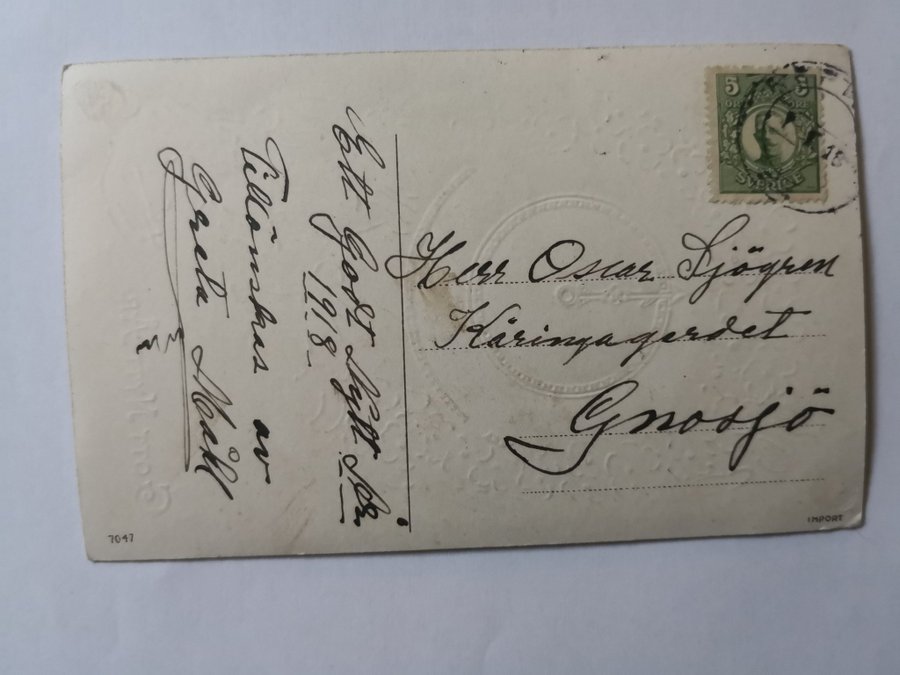 Ett Godt Nytt År
1918
Tillönskas av
Greta
5
SVERIGE
Herr Oscar Sjögren
Käringagerdet
Gnosjö
7047
IMPORT